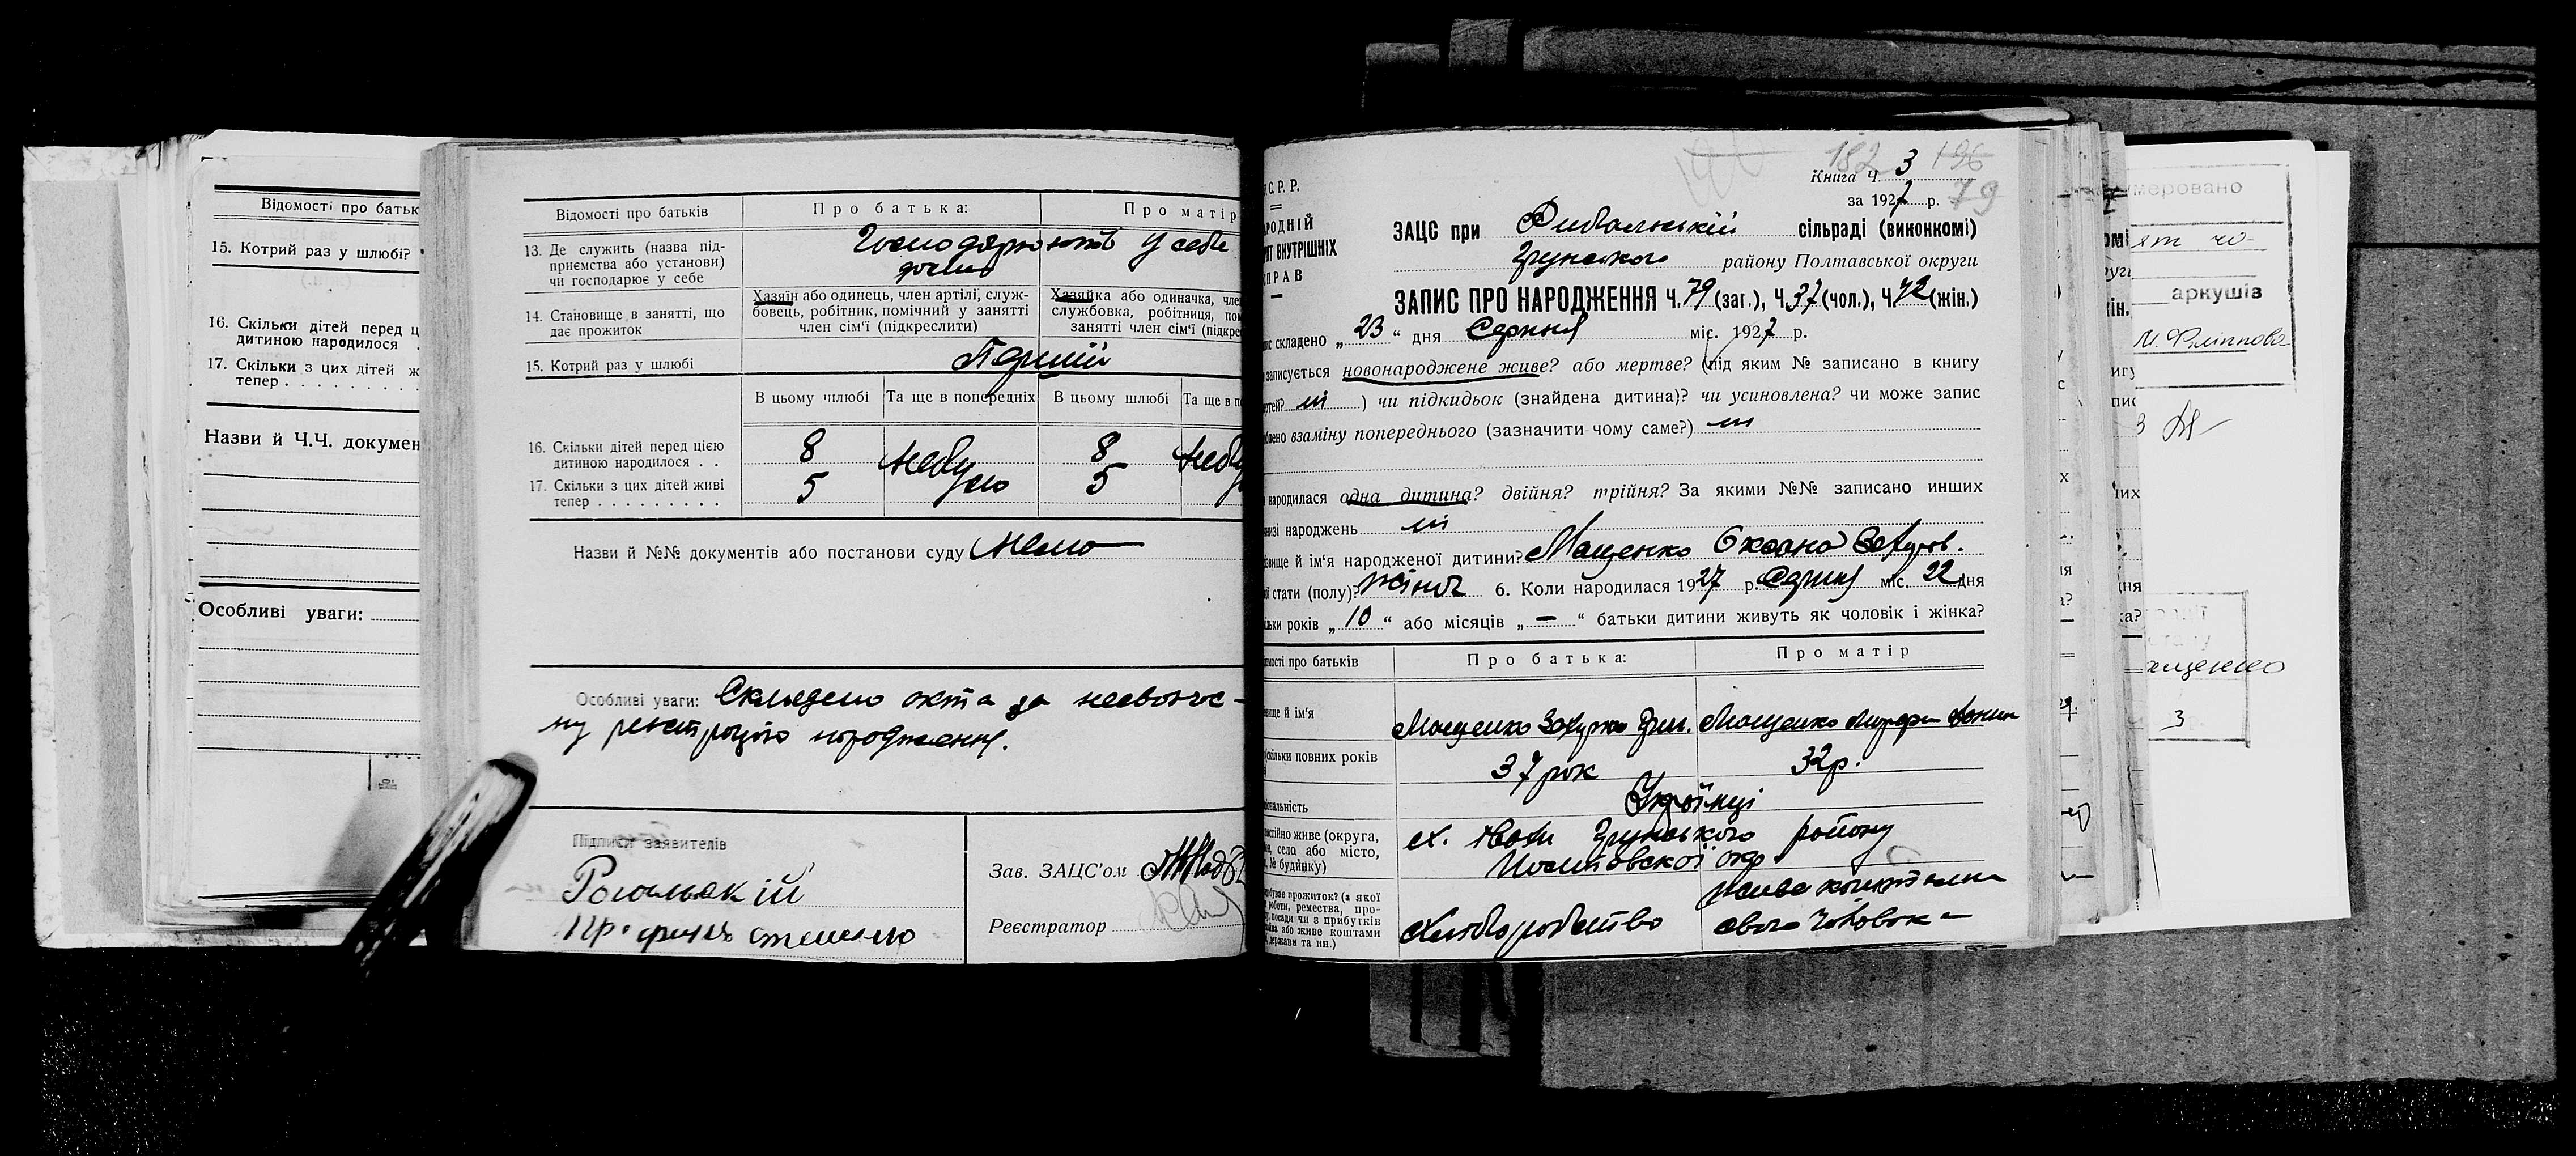 Відомості про батьк
15. Котрий раз у шлюбі?
16. Скільки дітей перед ц
дитиною народилося .
17. Скільки з цих дітей ж
тепер . . . . . . . . .
Назви й Ч.Ч. докумен
Особливі уваги:
Відомості про батьків
Про батька:
Про матір
13. Де служить (назва під-
приємства або установи)
чи господарює у себе
Господарюють у себе
дома
14. Становище в занятті, що
дає прожиток
Хазяїн або одинець, член артілі, служ-
бовець, робітник, помічний у занятті
член сім'ї (підкреслити)
Хазяйка або одиначка, чле
службовка, робітниця, пом
занятті член сім'ї (підкре
15. Котрий раз у шлюбі
Перший
В цьому шлюбі
Та ще в попередніх
В цьому шлюбі
Та ще в п
16. Скільки дітей перед цією
дитиною народилося . .
8
небу
8
небу
17. Скільки з цих дітей живі
тепер . . . . . . . . .
5
ло
5
Назви й №№ документів або постанови суду Нема
Особливі уваги: Складено акта за несвоєчас-
ну реєстрацію народження.
Підписи заявителів
Зав. ЗАЦС'ом
Реєстратор
С. Р. Р.
АРОДНІЙ
РІЯТ ВНУТРІШНІХ
ПРАВ
182 3 196
Книга Ч.
за 1927 р. 79
ЗАЦС при Рибальській сільраді (виконкомі)
Грунського району Полтавської округи
ЗАПИС ПРО НАРОДЖЕННЯ Ч. 79 (заг.), Ч. 37 (чол.), Ч. 42 (жін.)
складено „ 23 “ дня Серпня міс. 1927 р.
записується новонароджене живе? або мертве? (під яким № записано в книгу
ні ) чи підкидьок (знайдена дитина)? чи усиновлена? чи може запис
взаміну попереднього (зазначити чому саме?) ні
народилася одна дитина? двійня? трійня? За якими №№ записано инших
народжень ні
й ім'я народженої дитини? Мащенко Оксана Захаров.
стати (полу)? жіноч 6. Коли народилася 1927 р. Серпня міс. 22 дня
років „ 10 “ або місяців „ — “ батьки дитини живуть як чоловік і жінка?
про батьків
Про батька:
Про матір
й ім'я
Мащенко Захарко Григ.
Мащенко
скільки повних років
37 рок
32 р.
Українці
живе (округа,
село або місто,
№ будинку)
х. Грунського району
Полтавської окр.
прожиток? (з якої
роботи, ремества, про-
посади чи з прибутків
або живе коштами
держави та ин.)
Хліборобство
Живе коштами
свого чоловіка
умеровано
аркушів
3